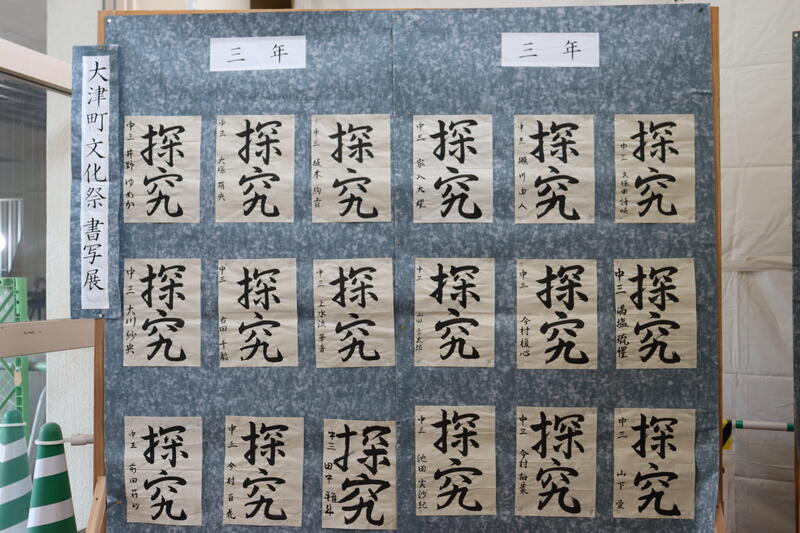 大津町文化祭書写展
三年
三年
探究
中三 井野 ゆめか
探究
中三 大塚 萌央
探究
中三 坂本 絢音
探究
中三 家入大燿
探究
中三 瀬川由人
探究
中三 久保田詩咲
探究
中三 大川紗央
探究
中三 吉田千
探究
中三 上水流華音
探究
中三 山田
探究
中三 今村榎心
探究
中三
探究
中三 前田
探究
中三 今村百花
探究
中三 田中雅
探究
中三 池田実沙紀
探究
中三 今村柚葉
探究
中三 山下愛